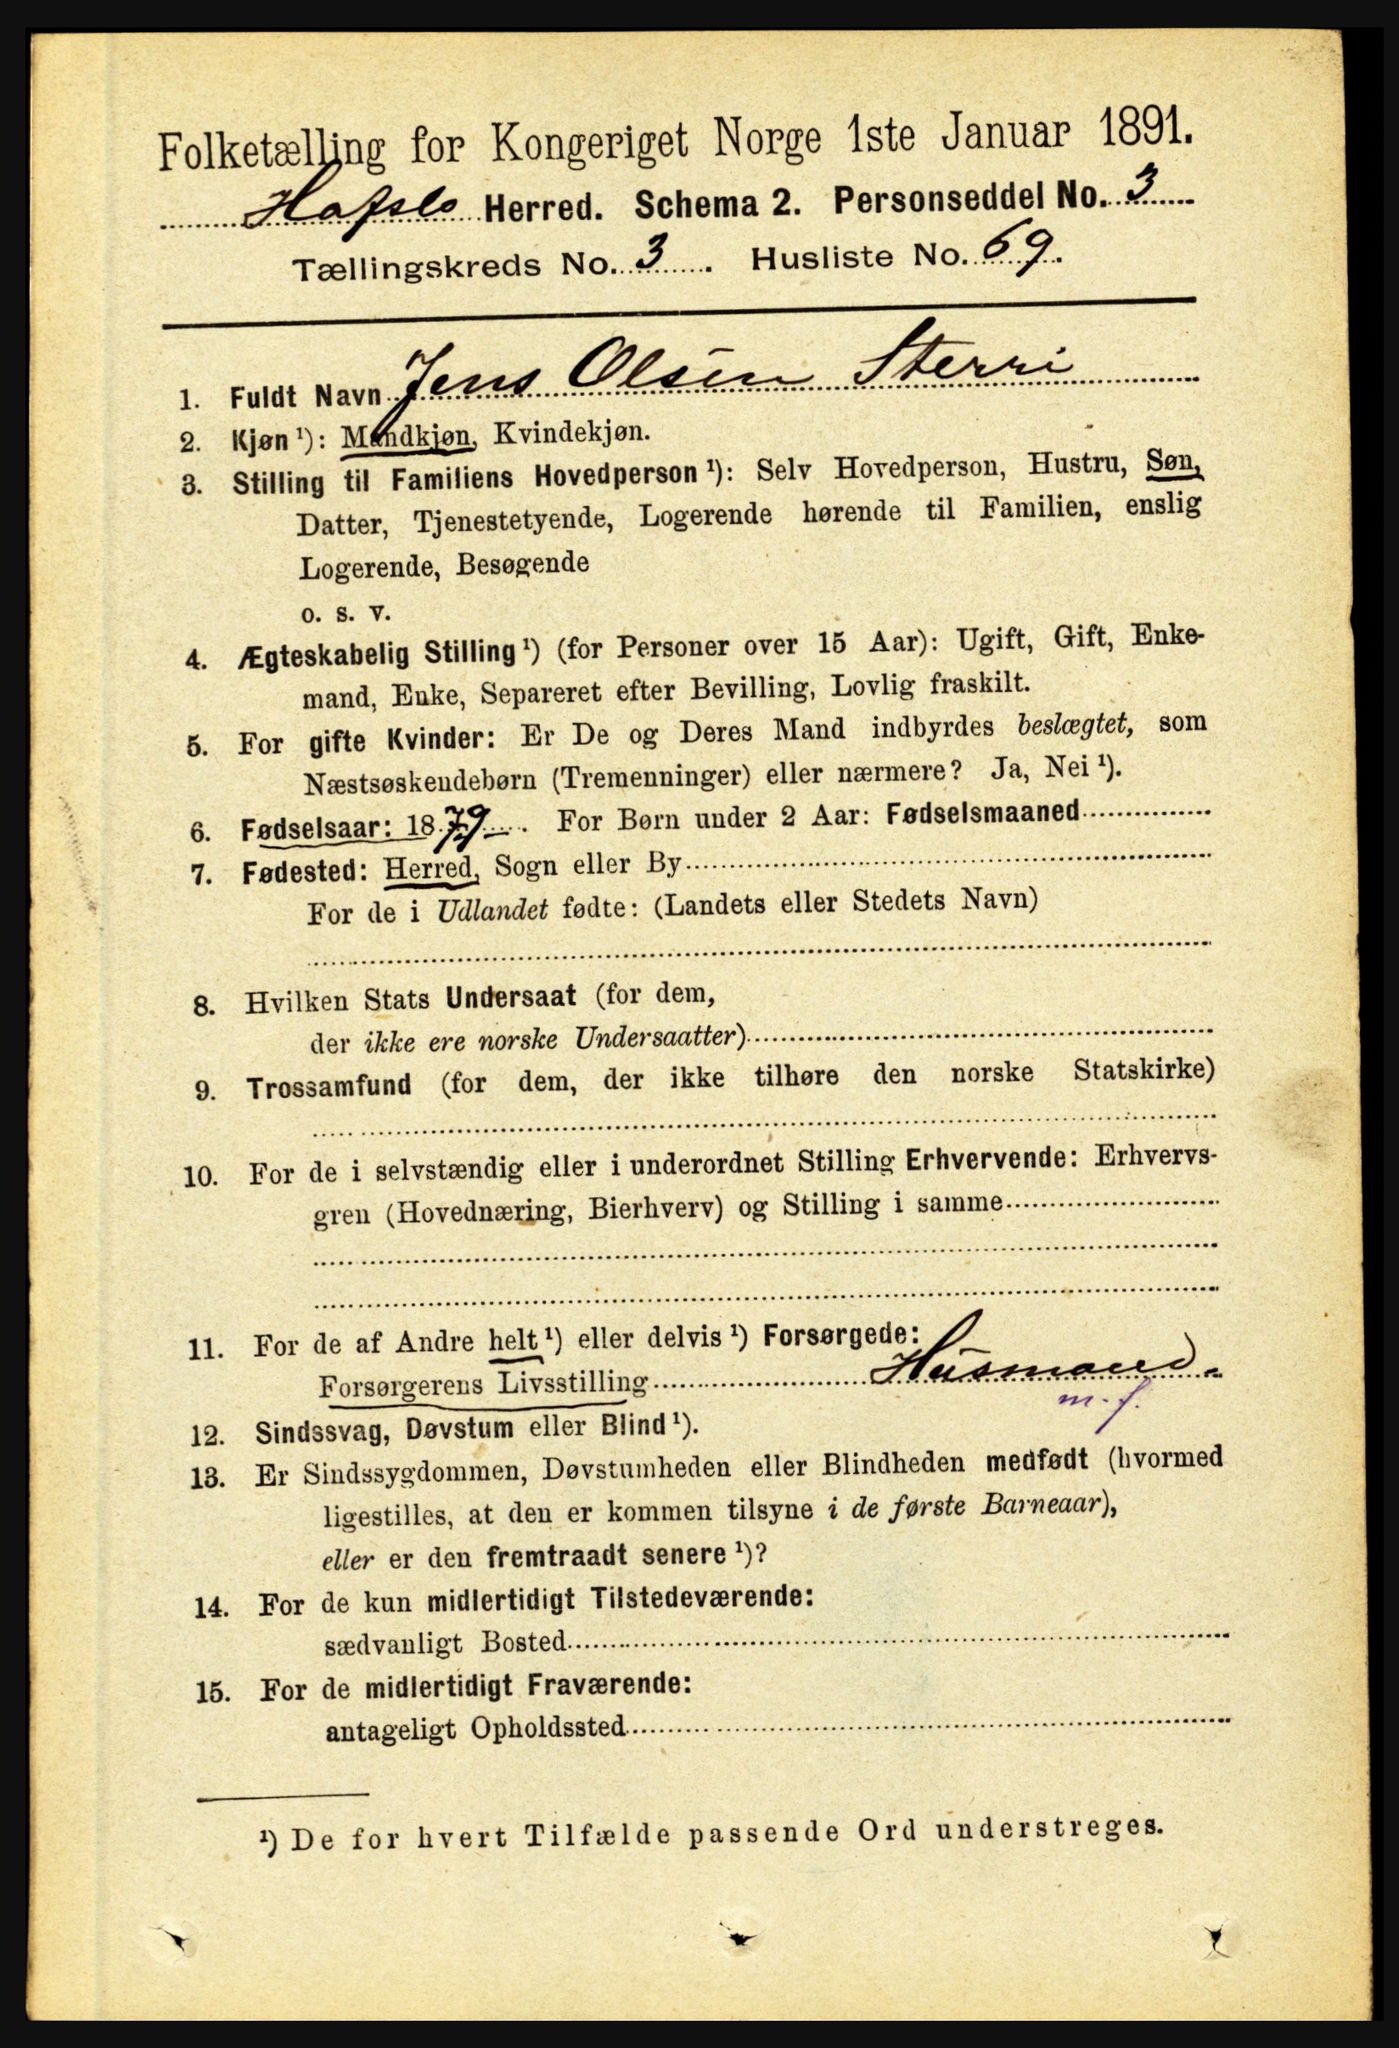 Folketælling for Kongeriget Norge 1ste Januar 1891.
Hafslo Herred. Schema 2. Personseddel No. 3
Tællingskreds No. 3. Husliste No. 69.
1. Fuldt Navn Jens Olsen Sterri
2. Kjøn ¹): Mandkjøn, Kvindekjøn.
3. Stilling til Familiens Hovedperson ¹): Selv Hovedperson, Hustru, Søn,
Datter, Tjenestetyende, Logerende hørende til Familien, enslig
Logerende, Besøgende
o. s. v.
4. Ægteskabelig Stilling ¹) (for Personer over 15 Aar): Ugift, Gift, Enke-
mand, Enke, Separeret efter Bevilling, Lovlig fraskilt.
5. For gifte Kvinder: Er De og Deres Mand indbyrdes beslægtet, som
Næstsøskendebørn (Tremenninger) eller nærmere? Ja, Nei ¹).
6. Fødselsaar: 1879. For Børn under 2 Aar: Fødselsmaaned
7. Fødested: Herred, Sogn eller By
For de i Udlandet fødte: (Landets eller Stedets Navn)
8. Hvilken Stats Undersaat (for dem,
der ikke ere norske Undersaatter)
9. Trossamfund (for dem, der ikke tilhøre den norske Statskirke)
10. For de i selvstændig eller i underordnet Stilling Erhvervende: Erhvervs-
gren (Hovednæring, Bierhverv) og Stilling i samme
11. For de af Andre helt ¹) eller delvis ¹) Forsørgede:
Forsørgerens Livsstilling Husmand.
m. f.
12. Sindssvag, Døvstum eller Blind ¹).
13. Er Sindssygdommen, Døvstumheden eller Blindheden medfødt (hvormed
ligestilles, at den er kommen tilsyne i de første Barneaar),
eller er den fremtraadt senere ¹)?
14. For de kun midlertidigt Tilstedeværende:
sædvanligt Bosted
15. For de midlertidigt Fraværende:
antageligt Opholdssted
¹) De for hvert Tilfælde passende Ord understreges.